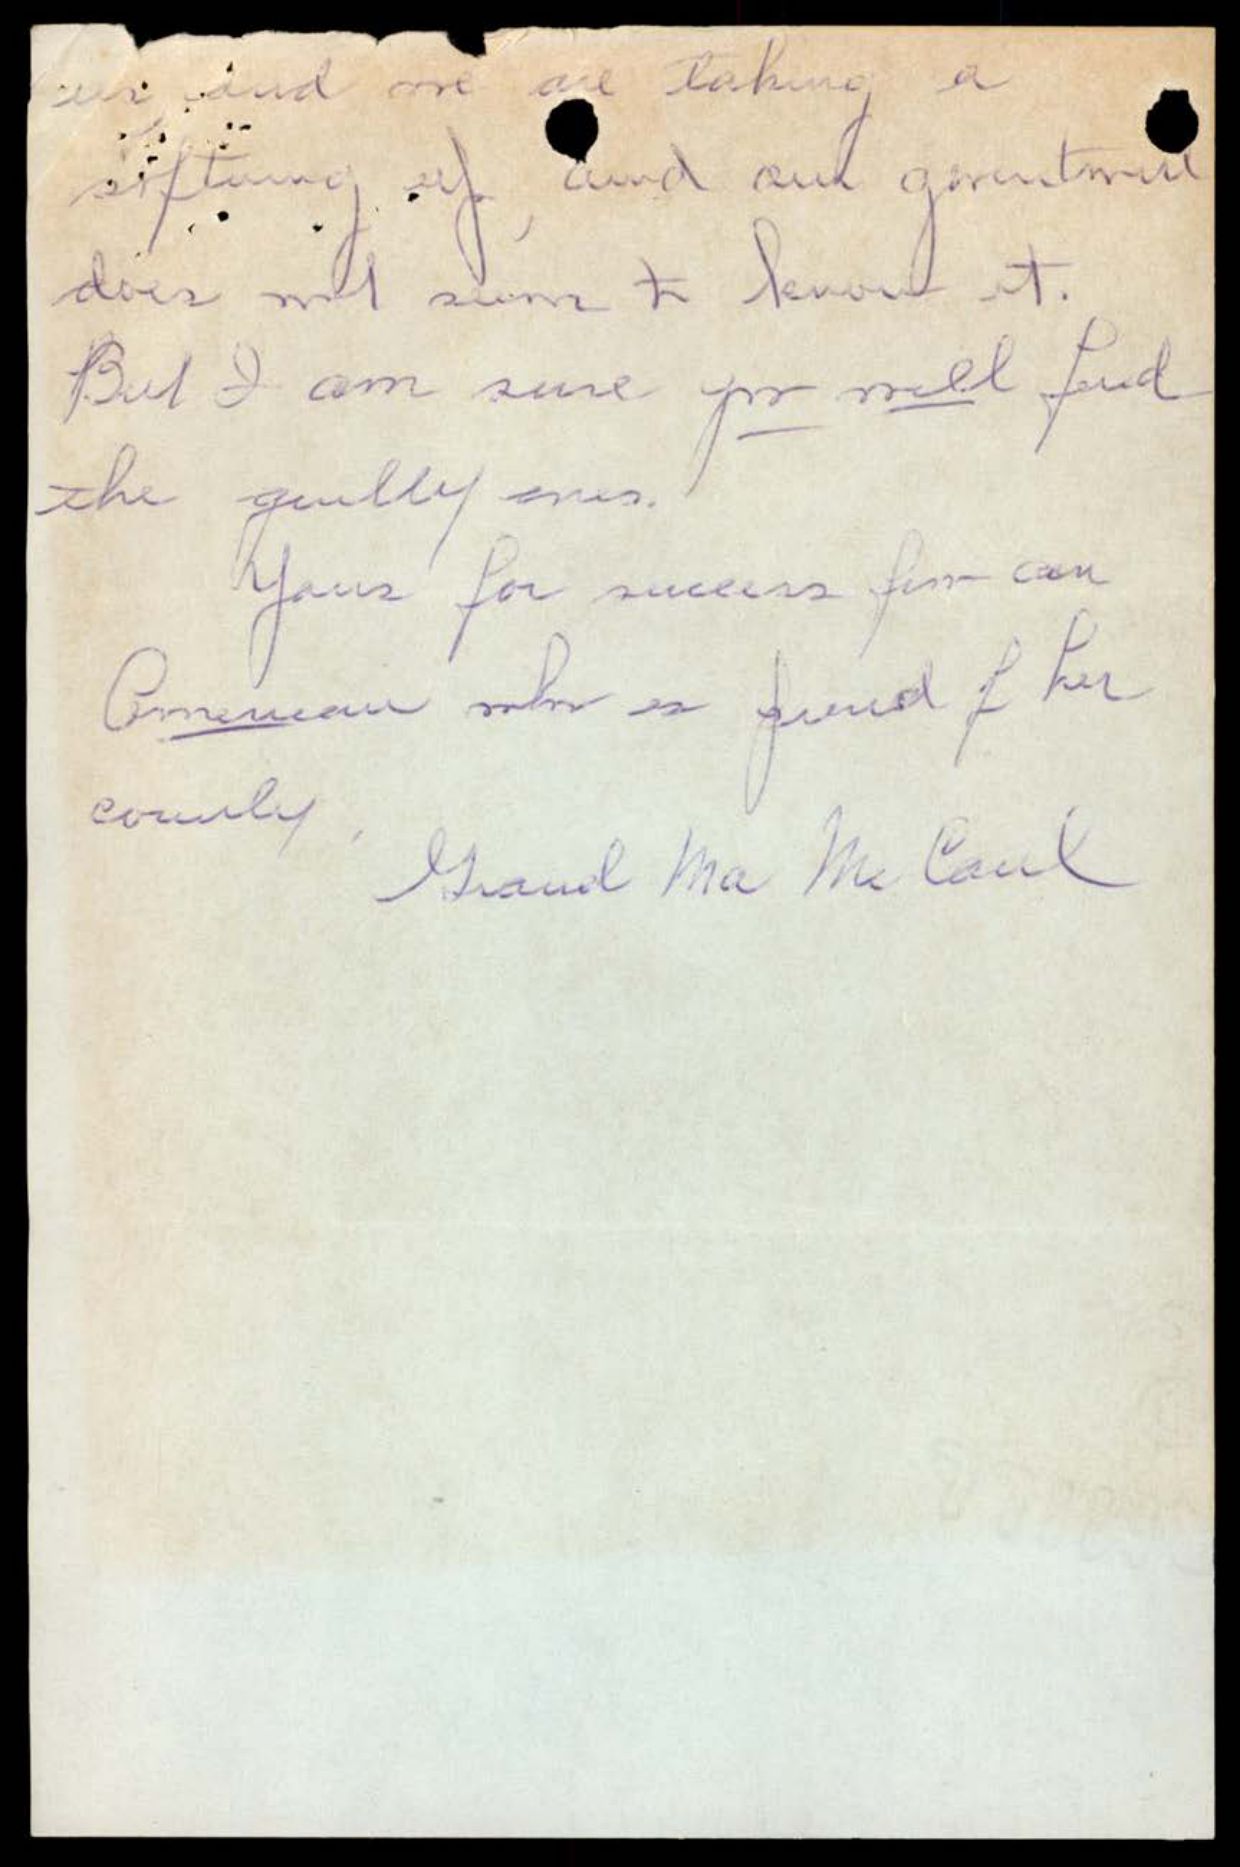 us and we are taking a
sifting of, and our government
does not seem to know it.
But I am sure you will find
the guilty ones.
Yours for success from an
American who is proud of her
country.
Grand Ma McCaul